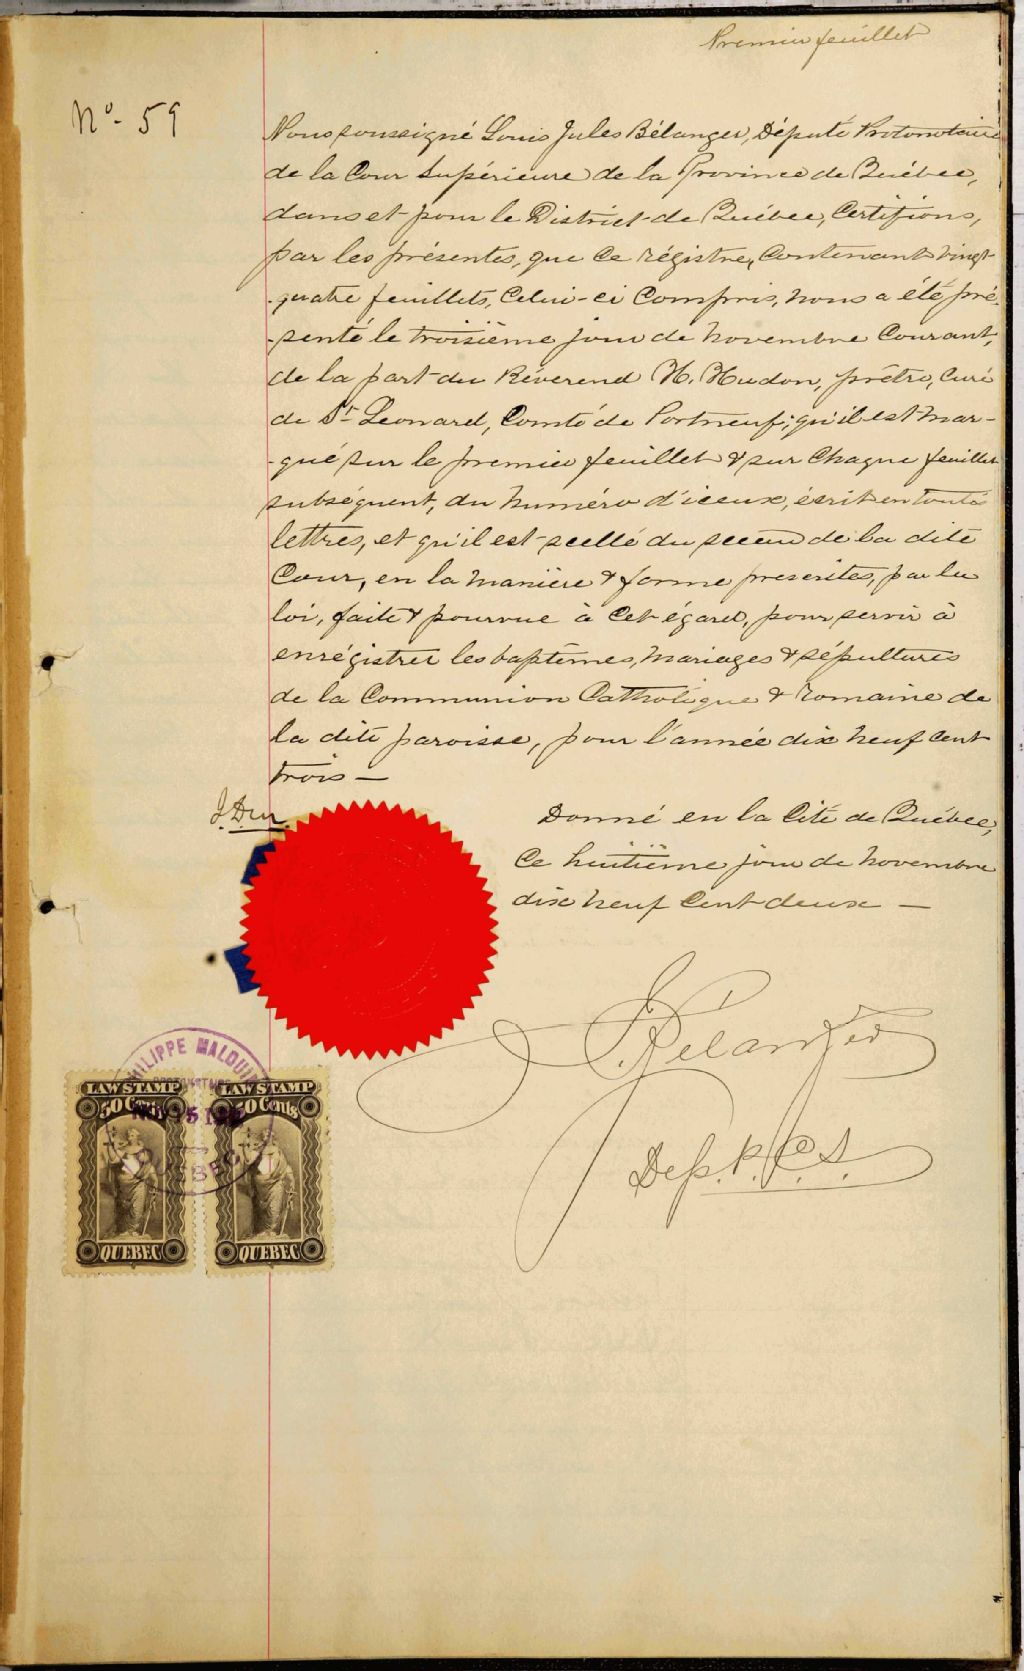 Premier feuillet
No. 59
Nous soussigné Louis Jules Bélanger, Député Protonotaire
de la Cour Supérieure de la Province de Québec,
dans et pour le District de Québec, Certifions,
par les présentes, que ce régistre, contenant vingt-
-quatre feuillets, celui-ci compris, nous a été pré-
-senté le troisième jour de novembre courant,
de la part du Révérend H. Hudon, prêtre, curé
de St Leonard, Comté de Portneuf; qu'il est mar-
-qué sur le premier feuillet & sur chaque feuillet
subséquent, du numéro d'iceux, écrit en toute
lettres, et qu'il est scellé du sceau de la dite
Cour, en la manière & forme prescrites, par la
loi, faite & pourvue à cet égard, pour servir à
enrégistrer les baptêmes, mariages & sépultures
de la Communion Catholique & romaine de
la dite paroisse, pour l'année dix neuf cent
trois —
Donné en la Cité de Québec,
ce huitième jour de novembre
dix neuf cent deux —
J. Bélanger
Dép. P. C. S.
PHILIPPE MALOUIN
PROTONOTAIRE
QUEBEC
LAW STAMP
50 Cents
QUEBEC
LAW STAMP
50 Cents
QUEBEC